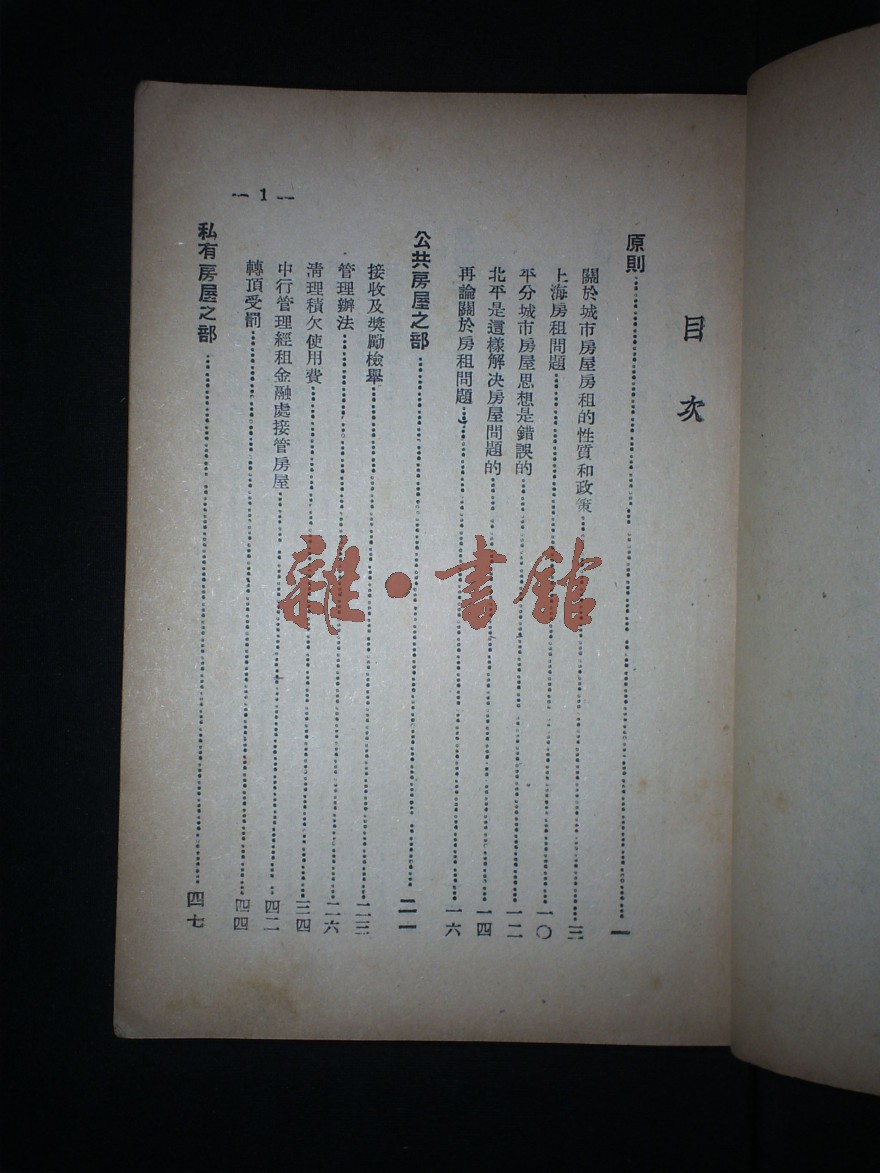 目次
原則 一
關於城市房屋房租的性質和政策 三
上海房租問題 一〇
平分城市房屋思想是錯誤的 一二
北平是這樣解決房屋問題的 一四
再論關於房租問題 一六
公共房屋之部 二一
接收及獎勵檢舉 二三
管理辦法 二六
清理積欠使用費 三四
中行管理經租金融處接管房屋 四二
轉頂受罰 四四
私有房屋之部 四七
— 1 —
雜·書館